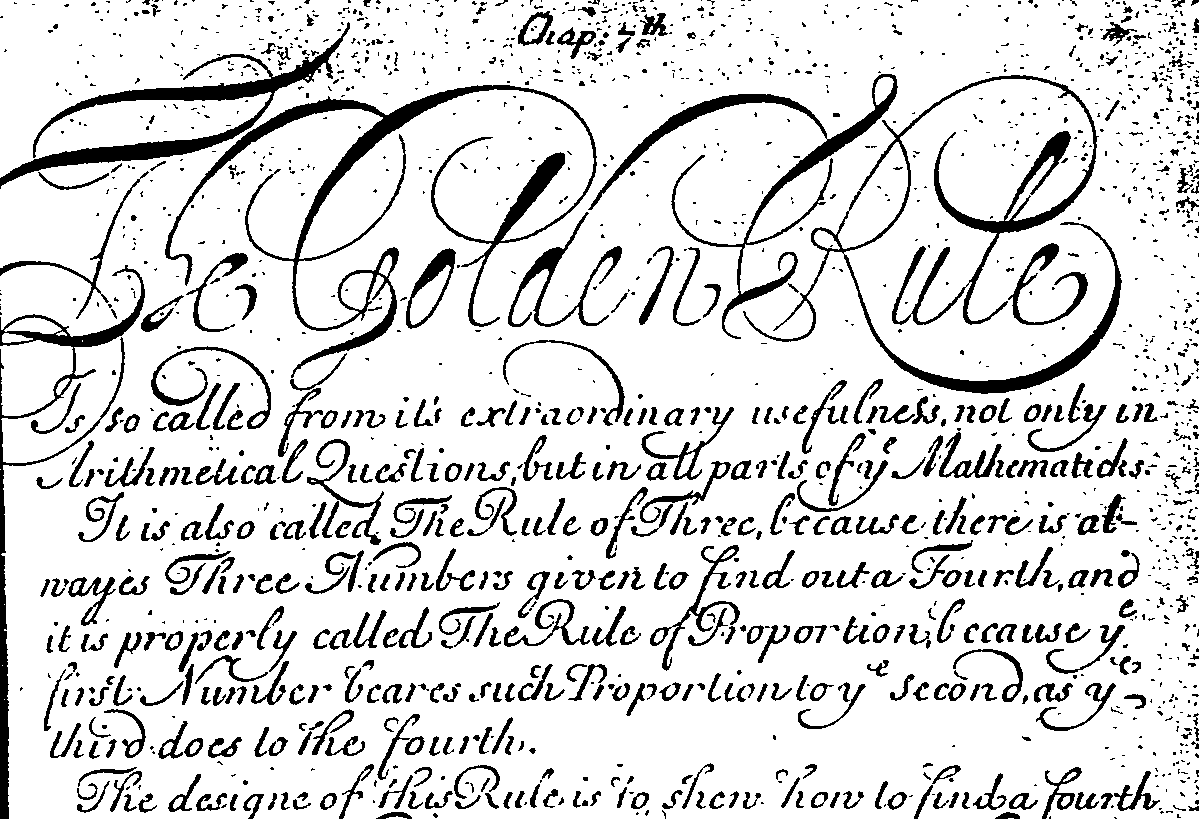 Chap: 7th
The Golden Rule
Is so called from it's extraordinary usefulness, not only in
Arithmetical Questions, but in all parts of ye Mathematicks.
It is also called, The Rule of Three, because there is al-
wayes Three Numbers given to find out a Fourth, and
it is properly called The Rule of Proportion, because ye
first Number beares such Proportion to ye second, as ye
third does to the fourth.
The designe of this Rule is to shew how to find a fourth